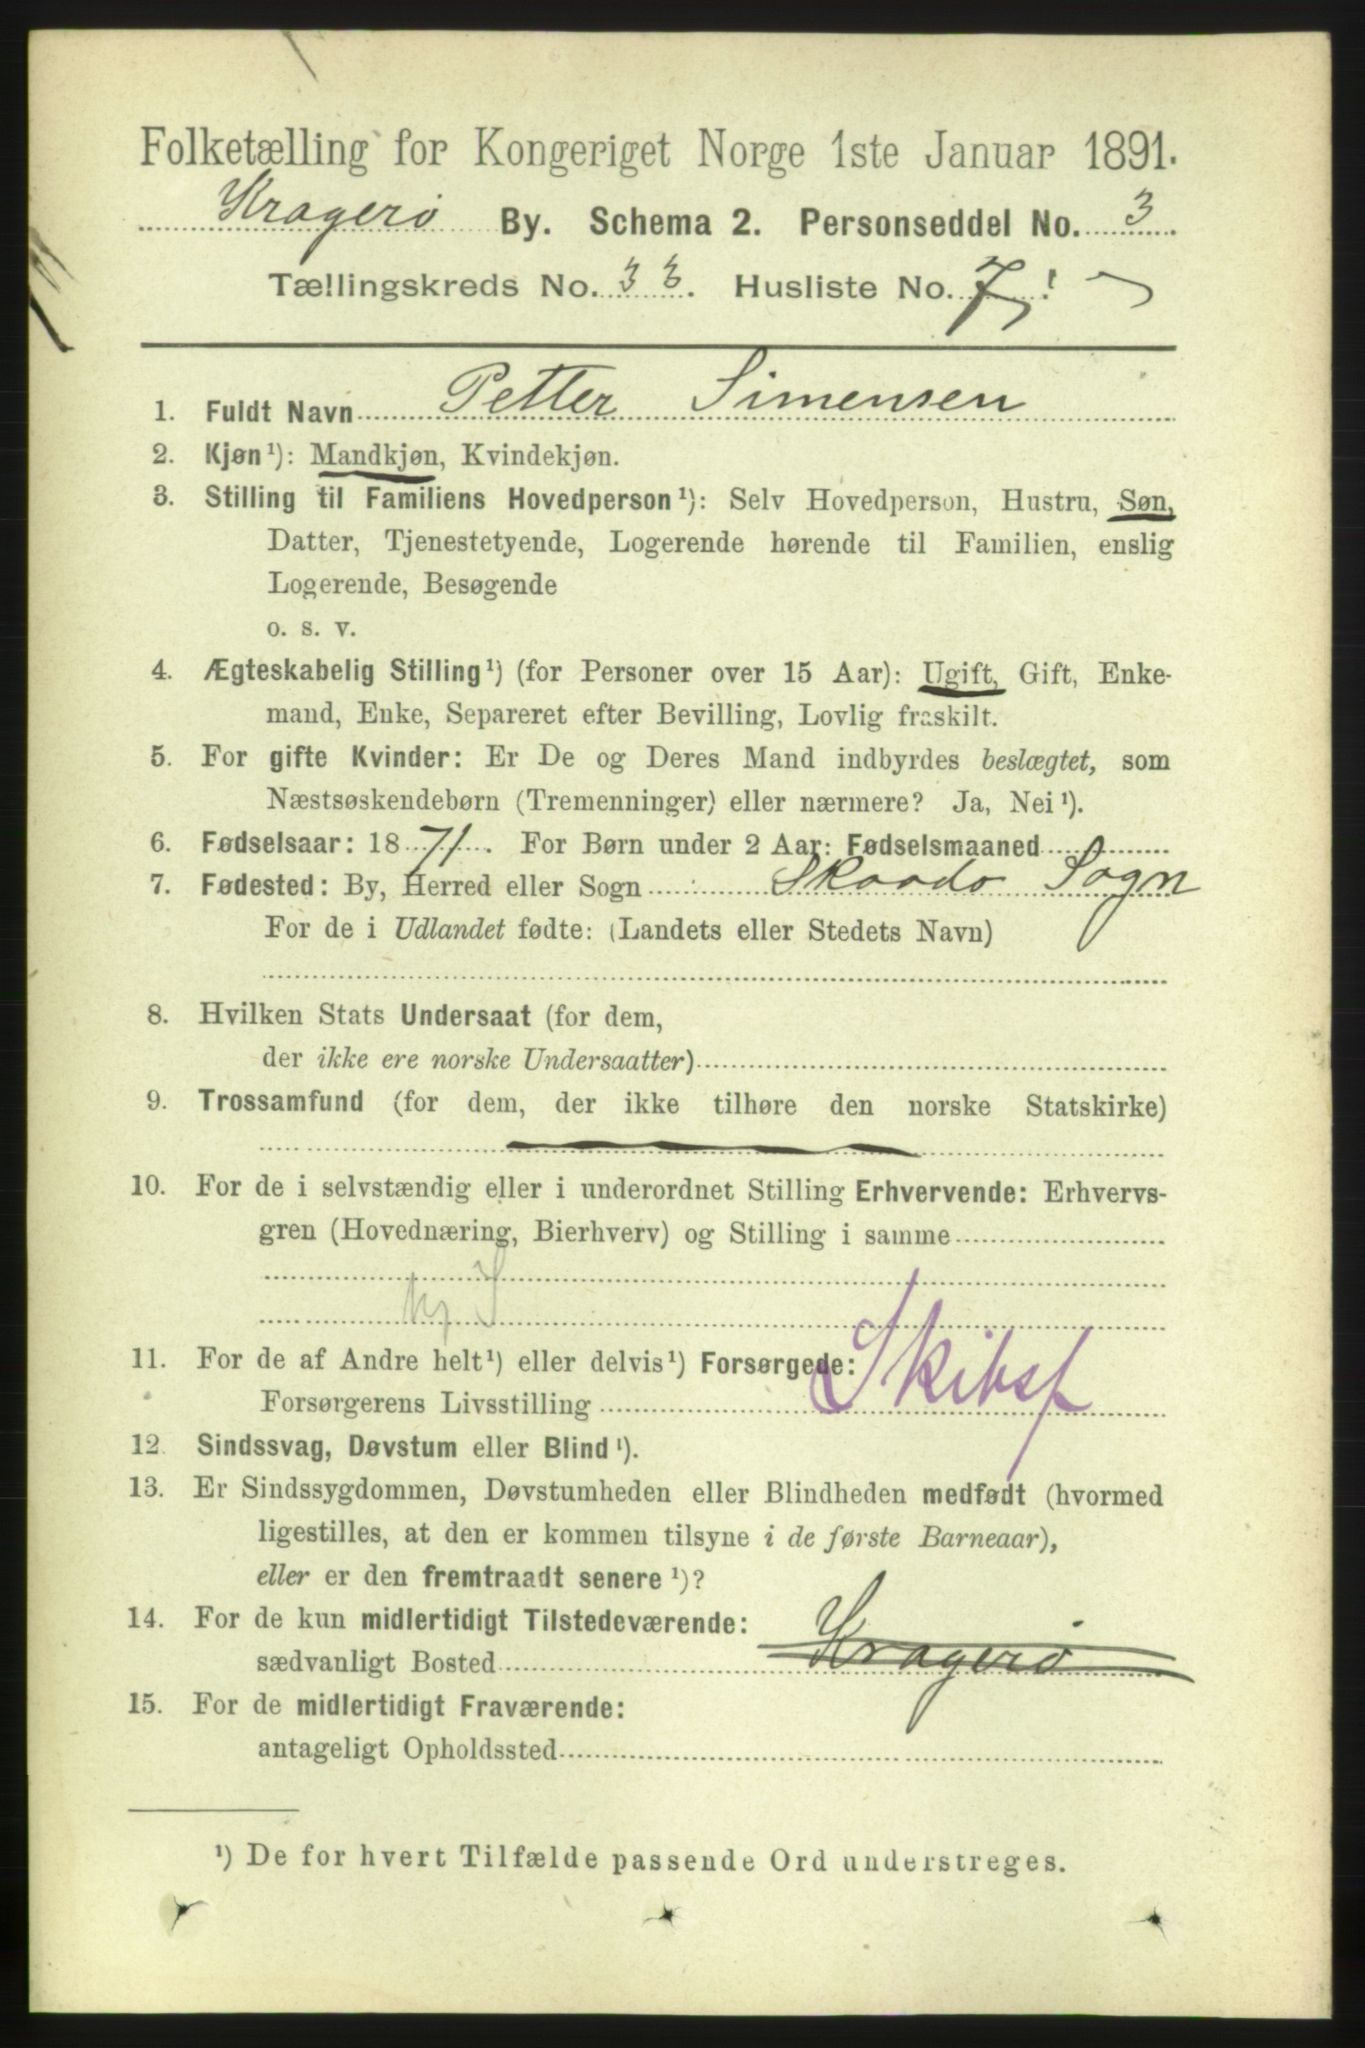 Folketælling for Kongeriget Norge 1ste Januar 1891.
Kragerø By. Schema 2. Personseddel No. 3.
Tællingskreds No. 33. Husliste No. 7.
1. Fuldt Navn Petter Simensen
2. Kjøn¹): Mandkjøn, Kvindekjøn.
3. Stilling til Familiens Hovedperson¹): Selv Hovedperson, Hustru, Søn,
Datter, Tjenestetyende, Logerende hørende til Familien, enslig
Logerende, Besøgende
o. s. v.
4. Ægteskabelig Stilling¹) (for Personer over 15 Aar): Ugift, Gift, Enke-
mand, Enke, Separeret efter Bevilling, Lovlig fraskilt.
5. For gifte Kvinder: Er De og Deres Mand indbyrdes beslægtet, som
Næstsøskendebørn (Tremenninger) eller nærmere? Ja, Nei¹).
6. Fødselsaar: 1871. For Børn under 2 Aar: Fødselsmaaned
7. Fødested: By, Herred eller Sogn Skaado Sogn
For de i Udlandet fødte: (Landets eller Stedets Navn)
8. Hvilken Stats Undersaat (for dem,
der ikke ere norske Undersaatter)
9. Trossamfund (for dem, der ikke tilhøre den norske Statskirke)
10. For de i selvstændig eller i underordnet Stilling Erhvervende: Erhvervs-
gren (Hovednæring, Bierhverv) og Stilling i samme
11. For de af Andre helt¹) eller delvis¹) Forsørgede:
Forsørgerens Livsstilling Skibsf
12. Sindssvag, Døvstum eller Blind¹).
13. Er Sindssygdommen, Døvstumheden eller Blindheden medfødt (hvormed
ligestilles, at den er kommen tilsyne i de første Barneaar),
eller er den fremtraadt senere¹)?
14. For de kun midlertidigt Tilstedeværende:
sædvanligt Bosted Kragerø
15. For de midlertidigt Fraværende:
antageligt Opholdssted
¹) De for hvert Tilfælde passende Ord understreges.